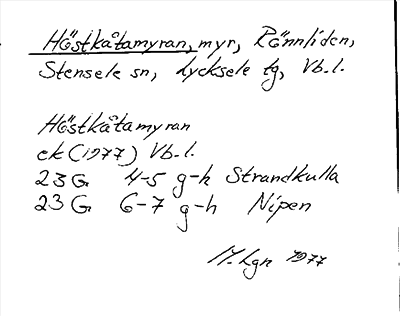 Höstkåtamyran, myr, Rönnliden,
Stensele sn, Lycksele tg, Vb.l.
Höstkåtamyran
ek (1977) Vb.l.
23 G 4-5 g-h Strandkulla
23 G 6-7 g-h Nipen
M. Lgn 1977